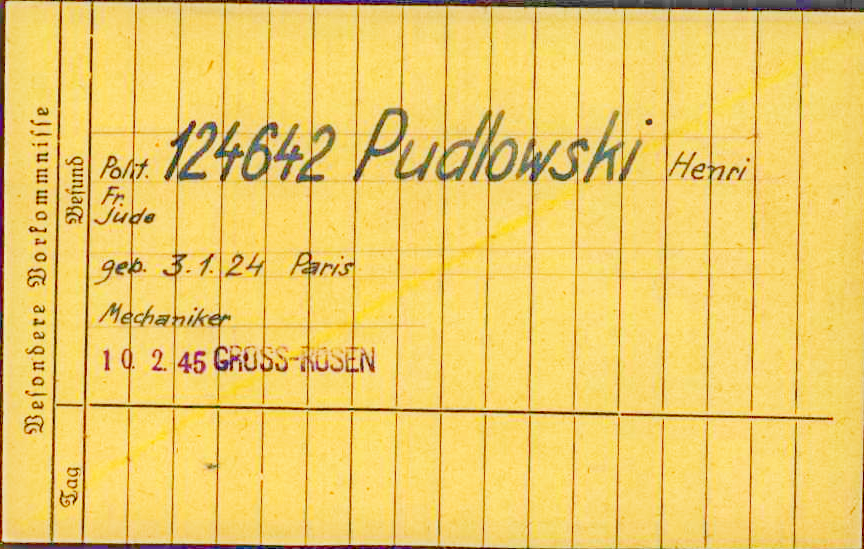 Besondere Vorkommnisse
Befund
Tag
Polit. 124642 Pudlowski Henri
Fr.
Jude
geb. 3.1.24 Paris
Mechaniker
10. 2. 45 GROSS-ROSEN